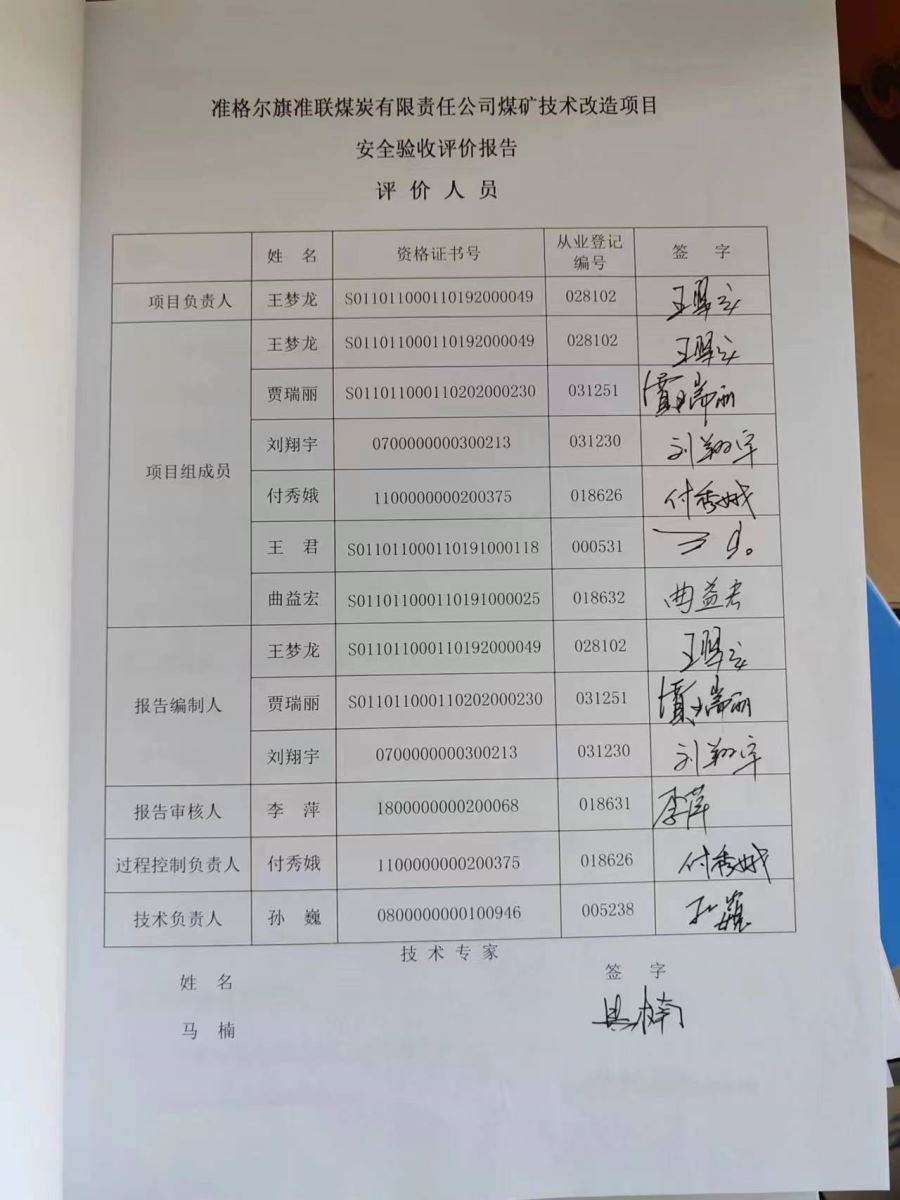 准格尔旗准联煤炭有限责任公司煤矿技术改造项目
安全验收评价报告
评价人员
姓 名 资格证书号 从业登记编号 签 字
项目负责人 王梦龙 S011011000110192000049 028102 王梦龙
项目组成员 王梦龙 S011011000110192000049 028102 王梦龙
贾瑞丽 S011011000110202000230 031251 贾瑞丽
刘翔宇 0700000000300213 031230 刘翔宇
付秀娥 1100000000200375 018626 付秀娥
王 君 S011011000110191000118 000531
曲益宏 S011011000110191000025 018632 曲益宏
报告编制人 王梦龙 S011011000110192000049 028102 王梦龙
贾瑞丽 S011011000110202000230 031251 贾瑞丽
刘翔宇 0700000000300213 031230 刘翔宇
报告审核人 李 萍 1800000000200068 018631 李萍
过程控制负责人 付秀娥 1100000000200375 018626 付秀娥
技术负责人 孙 巍 0800000000100946 005238 孙巍
技术专家
姓 名 签 字
马 楠 马楠